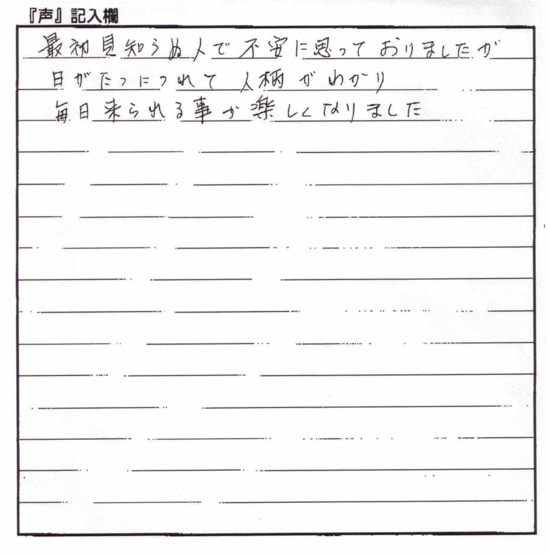 『声』記入欄
最初見知らぬ人で不安に思っておりましたが
日がたつにつれて人柄がわかり
毎日来られる事が楽しくなりました